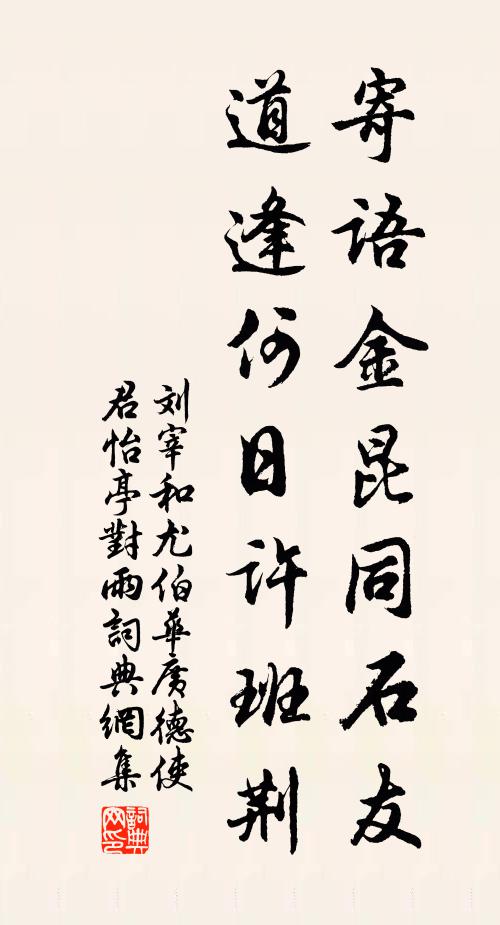 寄语金昆同石友
道逢何日许班荆
刘宰和尤伯华广德使
君怡亭對雨詞典網集
詞典
网印